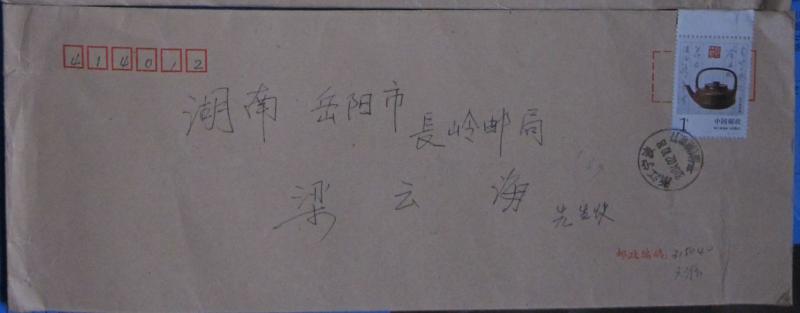 414012
湖南 岳阳市
長岭邮局
梁云海 先生收
中国邮政
邮政编码: 315040